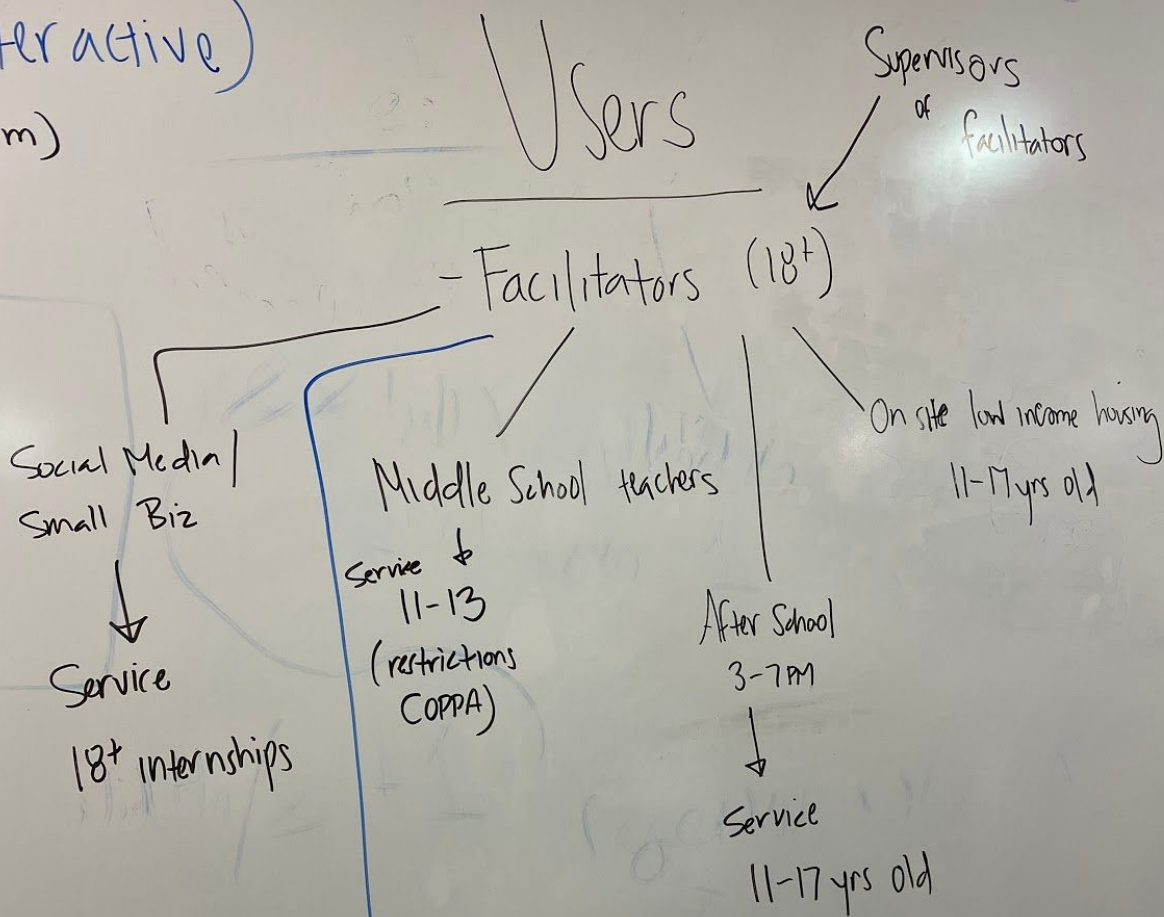 teractive)
m)
Users
Supervisors
of
facilitators
- Facilitators (18+)
Social Media/
Small Biz
Service
18+ internships
Middle School teachers
Service
11-13
(restrictions
COPPA)
After School
3-7PM
Service
11-17 yrs old
On site low income housing
11-17 yrs old